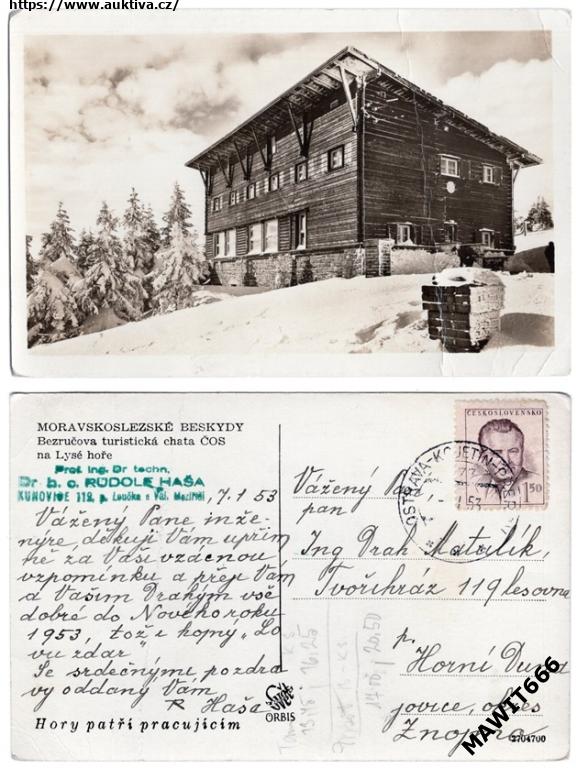 https://www.auktiva.cz/
MORAVSKOSLEZSKÉ BESKYDY
Bezručova turistická chata ČOS
na Lysé hoře
Prof. Ing. Dr techn.
Dr h. c. RUDOLF HAŠA
KUNOVICE 112, p. Loučka u Val. Meziříčí
7.1 53
Vážený Pane inže-
nýre děkuji Vám upřím
ně za Vaši vzácnou
vzpomínku a přeji Vám
a Vašim Drahým vše
dobré do Nového roku
1953, též i hojný „Lo
vu zdar"
Se srdečnými pozdra
vy oddaný Vám
R Haša
Hory patří pracujícím
ORBIS
ČESKOSLOVENSKO
1.50
OSTRAVA-KOJETÍN
53
Vážený Pan
pan
Ing Drah Matulík,
Tvořihráz 119 lesovna
p.
Horní Duna
jovice, okres
Znojmo
2704700
16.25
20.50
MAWIT666